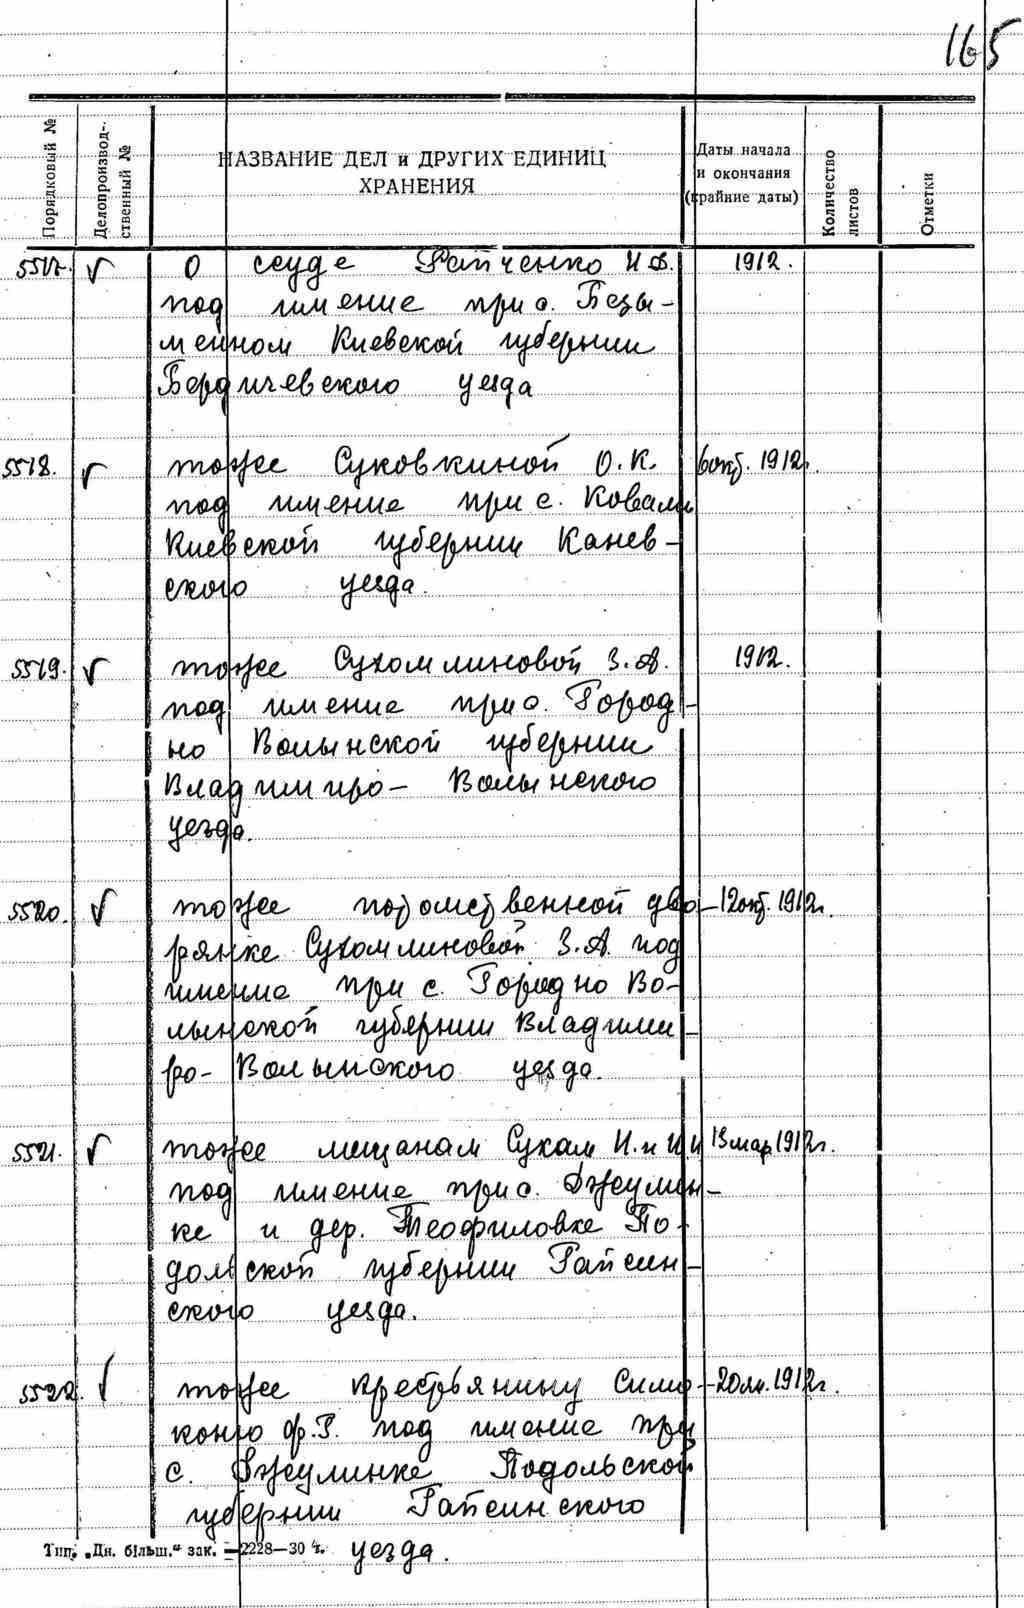 165
Порядковый №
Делопроизвод-
ственный №
НАЗВАНИЕ ДЕЛ и ДРУГИХ ЕДИНИЦ
ХРАНЕНИЯ
Даты начала
и окончания
(крайние даты)
Количество
листов
Отметки
5517. О ссуде Райченко И.Ф. 1912.
под имение при с. Безы-
менном Киевской губернии
Бердичевского уезда
5518. тоже Суковкиной О.К. 6 окт. 1912г.
под имение при с. Ковали
Киевской губернии Канев-
ского уезда.
5519. тоже Сухомлиновой З.А. 1912.
под имение при с. Город-
но Волынской губернии
Владимиро- Волынского
уезда.
5520. тоже потомственной дво- 12 окт. 1912г.
рянке Сухомлиновой З.А. под
имение при с. Городно Во-
лынской губернии Владими-
ро- Волынского уезда.
5521. тоже мещанам Сукам И. и И. и 13 мар. 1912г.
под имение при с. Джулин-
ке и дер. Теофиловке По-
дольской губернии Гайсин-
ского уезда.
5522. тоже крестьянину Симо- 1912г.
коню Ф.Г. под имение при
с. Джулинке Подольской
губернии Гайсинского
уезда.
Тип. „Дн. більш." зак. —2228—30 ч.